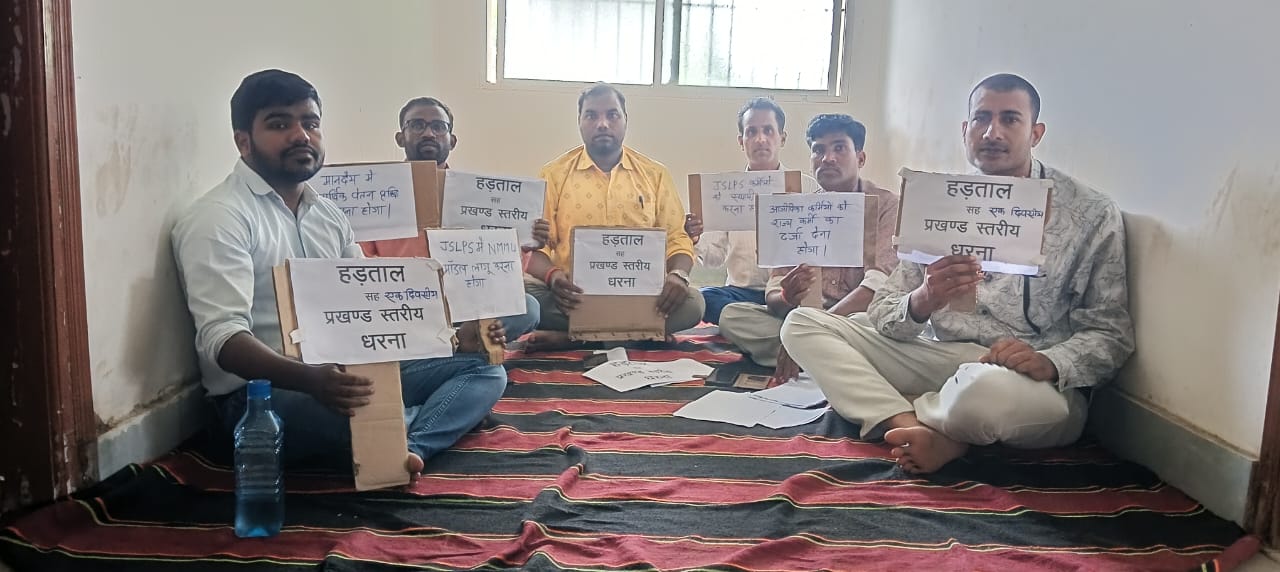 मानदेय में
वार्षिक वेतन वृद्धि
होगा।
हड़ताल
सह
प्रखण्ड स्तरीय
JSLPS में NMMU
मॉडल लागू करना
होगा
हड़ताल
सह एक दिवसीय
प्रखण्ड स्तरीय
धरना
हड़ताल
सह
प्रखण्ड स्तरीय
धरना
JSLPS कर्मियों
को स्थायी
करना
आजीविका कर्मियों को
राज्य कर्मी का
दर्जा देना
होगा।
हड़ताल
सह एक दिवसीय
प्रखण्ड स्तरीय
धरना
हड़ताल
प्रखण्ड स्तरीय
धरना